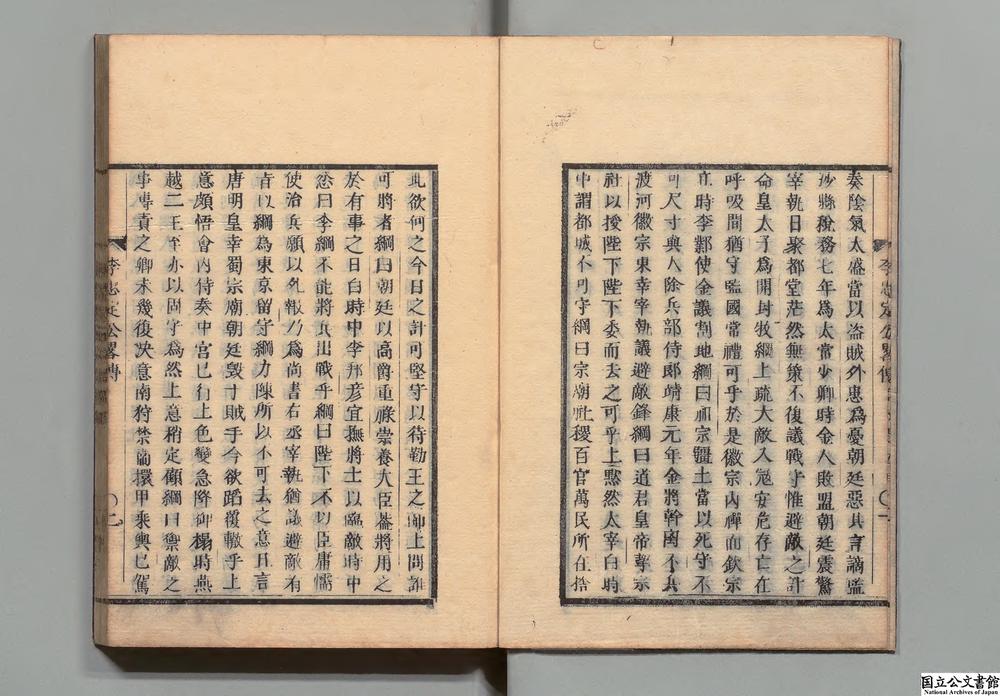 奏陰氣太盛當以盜賊外患為憂朝廷惡其言謫監
沙縣稅務七年為太常少卿時金人敗盟朝廷震驚
宰執日聚都堂茫然無策不復議戰守惟避敵之計
命皇太子為開封牧綱上疏大敵入冦安危存亡在
呼吸間猶守監國常禮可乎於是徽宗內禪而欽宗
立時李鄴使金議割地綱曰祖宗疆土當以死守不
可尺寸與人除兵部侍郎靖康元年金將幹离不兵
渡河徽宗東幸宰執議避敵鋒綱曰道君皇帝挈宗
社以授陛下陛下委而去之可乎上默然太宰白時
中謂都城不可守綱曰宗廟社稷百官萬民所在捨
李忠定公畧傳
〇一
此欲何之今日之計可堅守以待勤王之師上問誰
可將者綱曰朝廷以高爵重祿崇養大臣葢將用之
於有事之日白時中李邦彥宜撫將士以臨敵時中
忿曰李綱不能將兵出戰乎綱曰陛下不以臣庸懦
使治兵願以死報乃為尚書右丞宰執猶議避敵有
旨以綱為東京留守綱力陳所以不可去之意且言
唐明皇幸蜀宗廟朝廷毀于賊手今欲蹈覆轍乎上
意頗悟會內侍奏中宮已行上色變急降御榻時燕
越二王至亦以固守為然上意稍定顧綱曰禦敵之
事專責之卿未幾復决意南狩禁衞擐甲乘輿已駕
李忠定公畧傳
〇二
国立公文書館
National Archives of Japan